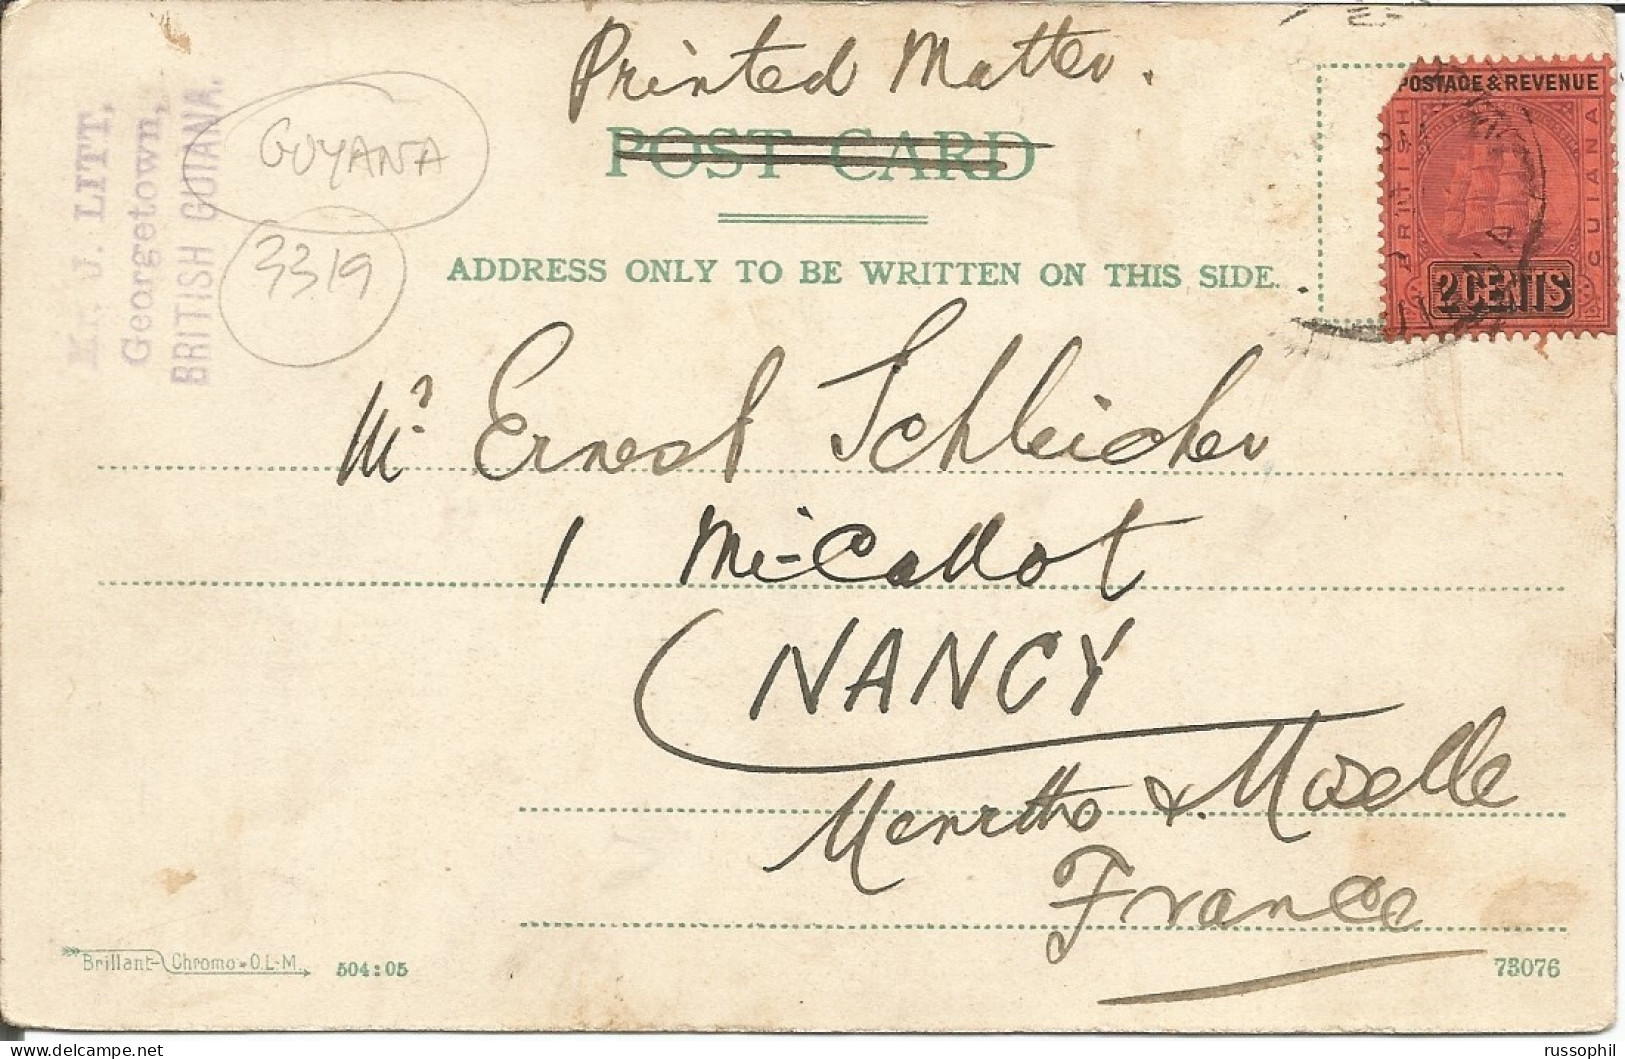 Printed Matter.
POST CARD
ADDRESS ONLY TO BE WRITTEN ON THIS SIDE.
Mr. J. LITT,
Georgetown,
BRITISH GUIANA.
GUYANA
3319
POSTAGE & REVENUE
BRITISH
GUIANA
2 CENTS
Mr Ernest Schleicher
1 Mi-Callot
NANCY
Meurthe & Moselle
France
Brillant-Chromo-O.L-M.
504:05
73076
delcampe.net
russophil